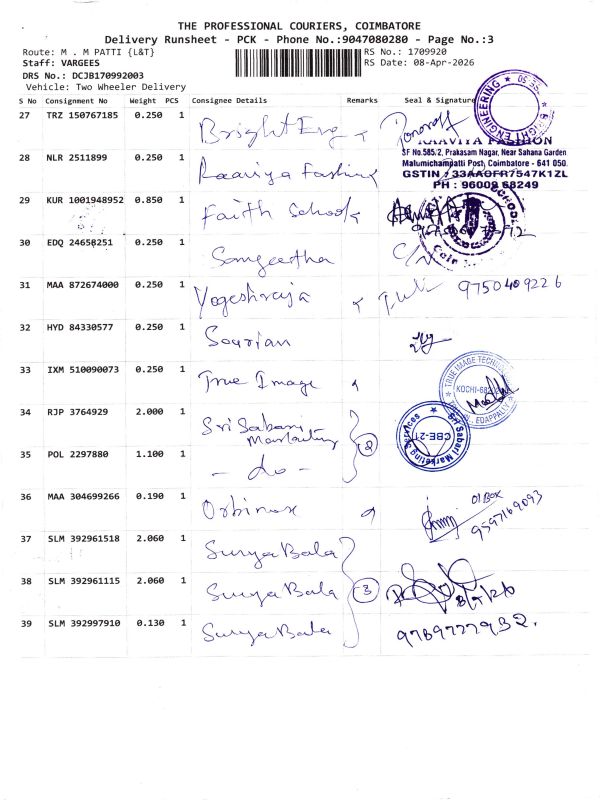 THE PROFESSIONAL COURIERS, COIMBATORE
Delivery Runsheet - PCK - Phone No.:9047080280 - Page No.:3
Route: M . M PATTI {L&T}
RS No.: 1709920
Staff: VARGEES
RS Date: 08-Apr-2026
DRS No.: DCJB170992003
Vehicle: Two Wheeler Delivery
S No Consignment No Weight PCS Consignee Details Remarks Seal & Signature
27 TRZ 150767185 0.250 1 Bright Eng
BRIGHT ENGINEERING
RAAVIYA FASHION
SF No.585/2, Prakasam Nagar, Near Sahana Garden
28 NLR 2511899 0.250 1 Raaviya Fashing
Malumichampatti Post, Coimbatore - 641 050.
GSTIN : 33AAOFR7547K1ZL
PH : 96009 68249
29 KUR 1001948952 0.850 1 Faith School
30 EDQ 24658251 0.250 1 Sangeetha
31 MAA 872674000 0.250 1 Yogeshraja 9750409226
32 HYD 84330577 0.250 1 Sourian
33 IXM 510090073 0.250 1 True Image
TRUE IMAGE TECHNOLOGIES
KOCHI-682
EDAPPALLY
34 RJP 3764929 2.000 1 Sri Sabari Marketing
2
Sri Sabari Marketing Services
CBE-21
35 POL 2297880 1.100 1 - do -
36 MAA 304699266 0.190 1 Orbinox
01 Box
9597169093
37 SLM 392961518 2.060 1 Surya Bala
38 SLM 392961115 2.060 1 Surya Bala 3
39 SLM 392997910 0.130 1 Surya Bala 9789777932.